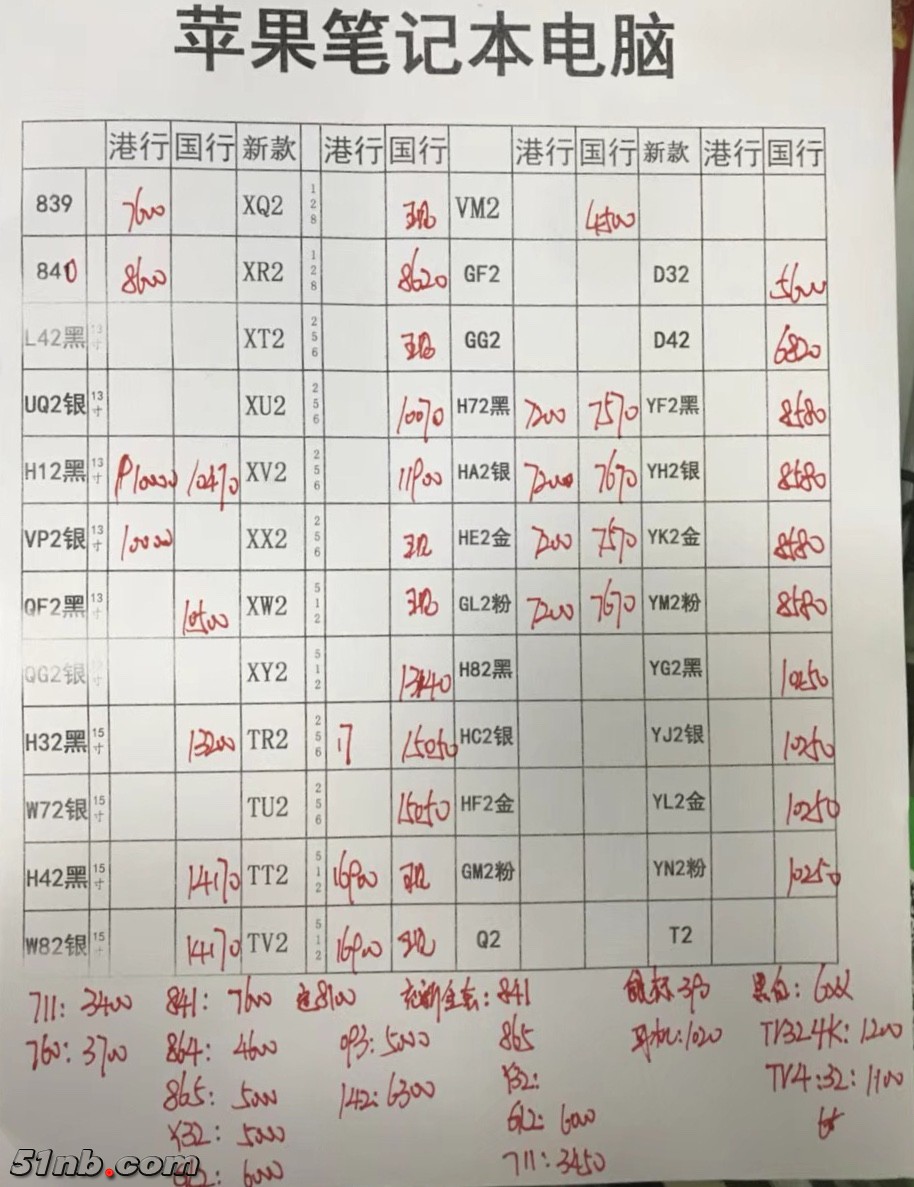 苹果笔记本电脑
港行 国行 新款 港行 国行 港行 国行 新款 港行 国行
839 7600 XQ2 128 现 VM2 4500
840 8600 XR2 128 8620 GF2 D32 5600
L42黑 13寸 XT2 256 现 GG2 D42 6820
UQ2银 13寸 XU2 256 10070 H72黑 7200 7570 YF2黑 8580
H12黑 13寸 10000 10470 XV2 256 11900 HA2银 7200 7670 YH2银 8580
VP2银 13寸 10000 XX2 256 现 HE2金 7200 7570 YK2金 8580
QF2黑 13寸 10500 XW2 512 现 GL2粉 7200 7670 YM2粉 8580
QG2银 寸 XY2 512 H82黑 YG2黑 10250
H32黑 15寸 13200 TR2 256 15050 HC2银 YJ2银 10250
W72银 15寸 TU2 256 15050 HF2金 YL2金 10250
H42黑 15寸 14170 TT2 512 16900 现 GM2粉 YN2粉 10250
W82银 15寸 14170 TV2 512 16900 现 Q2 T2
711: 3400 841: 7600 8100 全套: 841 鼠标 黑白:
760: 3700 864: 4600 093: 5000 865 耳机: 1020 TV32 4K: 1200
865: 5000 142: 6300 Y32: TV4: 32: 1100
Y32: 5000 612: 6000
6000 711: 3450
51nb.com